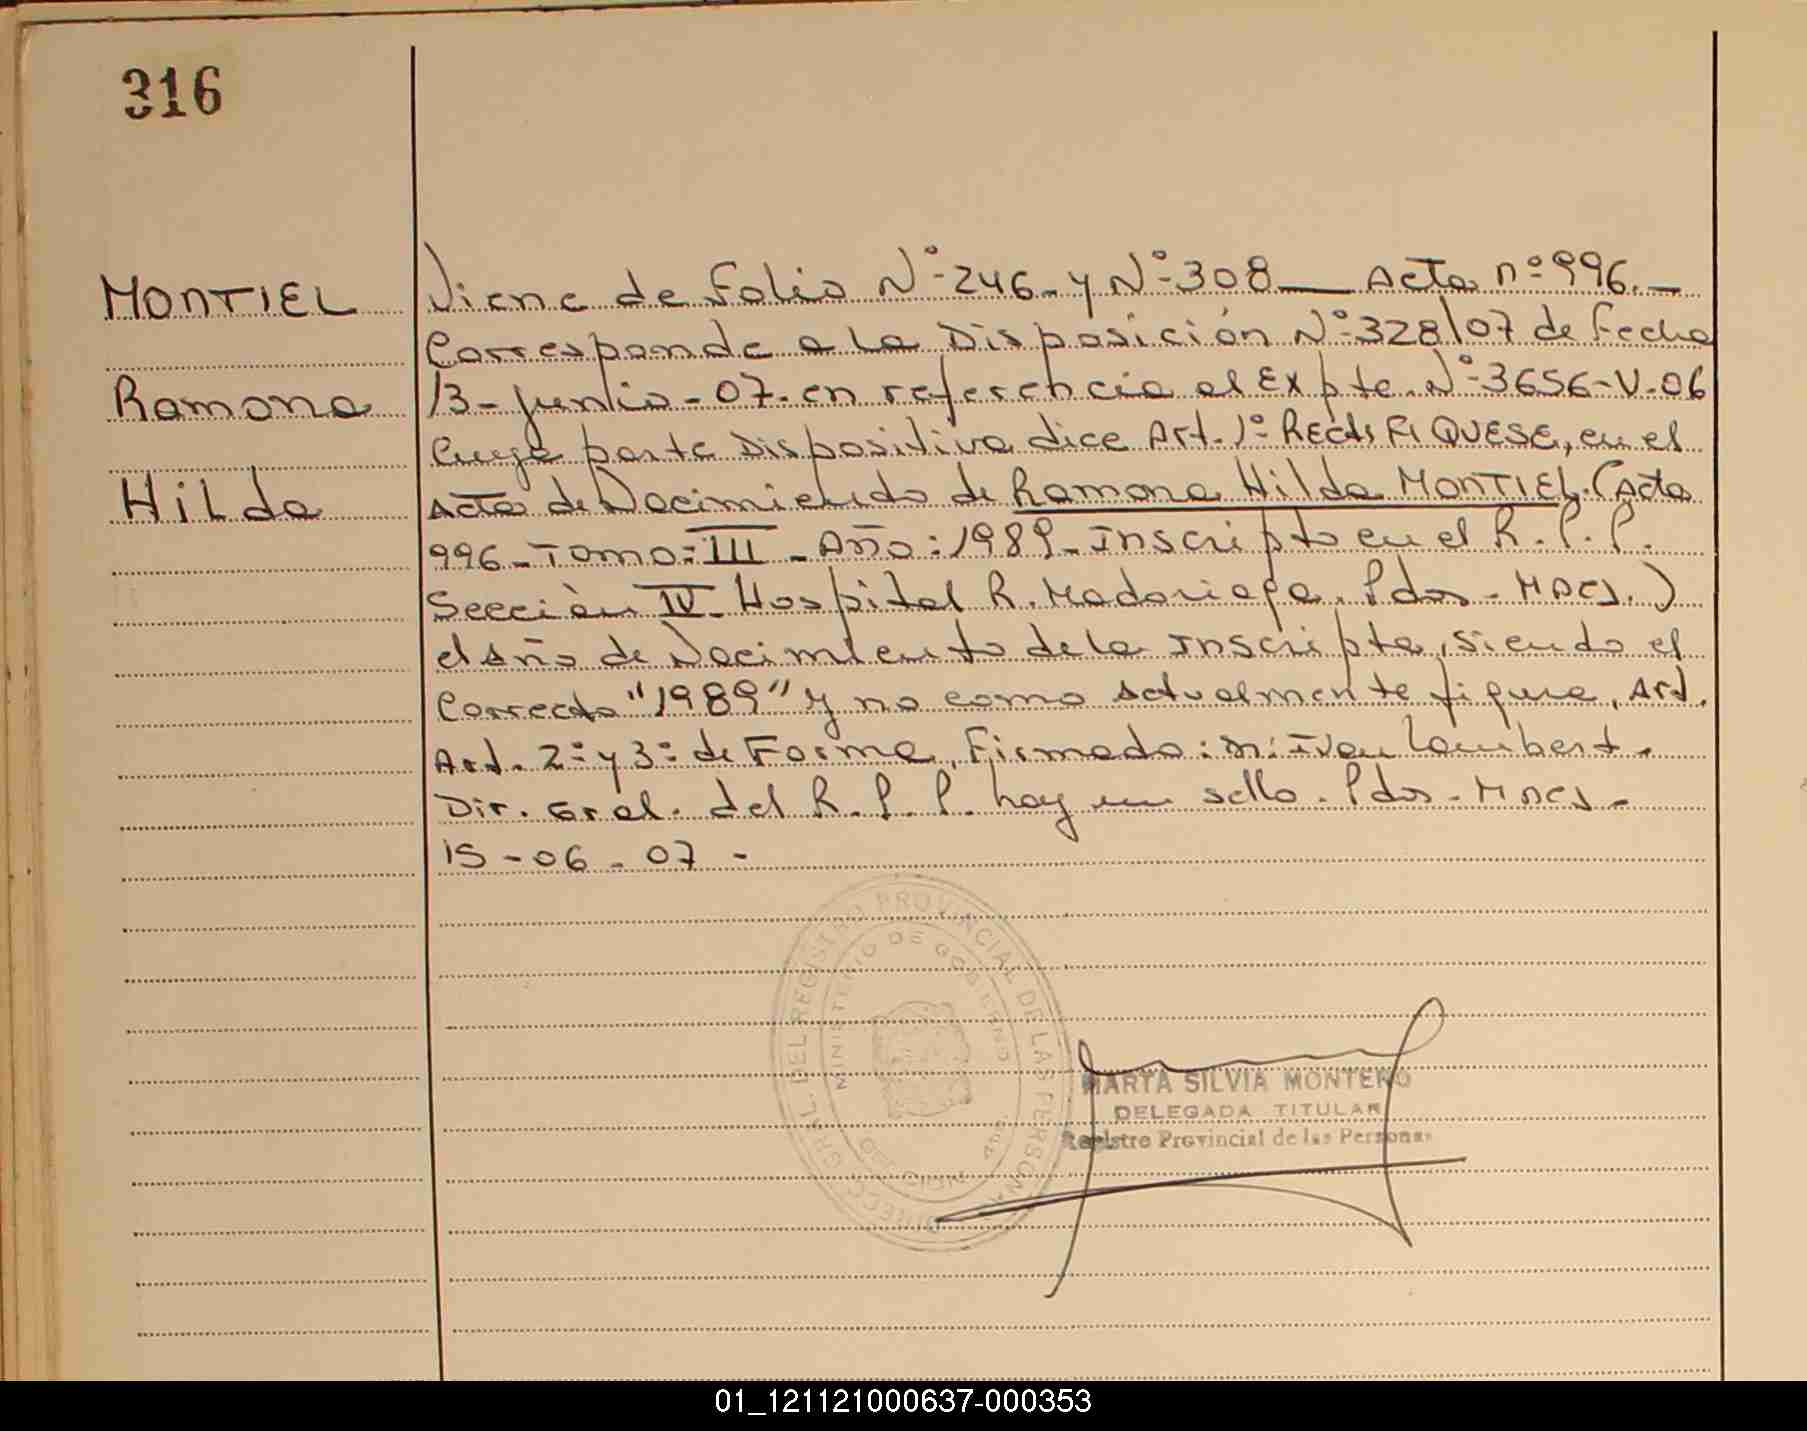 316
MONTIEL
Ramona
Hilda
Viene de Folio Nº 246 - y Nº 308 — Acta nº 996. -
Corresponde a la Disposición Nº 328/07 de fecha
13 - junio - 07. en referencia al Expte. Nº 3656-V-06
cuya parte Dispositiva dice Art. 1º RECTIFIQUESE, en el
Acta de Nacimiento de Ramona Hilda MONTIEL. (Acta
996 - Tomo: III - Año: 1989 - Inscripto en el R. P. P.
Sección IV - Hospital R. Madariaga. Pdas - Mnes.)
el año de Nacimiento de la Inscripta, siendo el
Correcto "1989" y no como actualmente figura, Art.
Art. 2º y 3º de Forma, Firmado: Ivan Lambert.
Dir. Gral. del R. P. P. hay un sello. Pdas - Mnes -
15 - 06 - 07 -
DIRECC. GRAL. DEL REGISTRO PROVINCIAL DE LAS PERSONAS
MINISTERIO DE GOBIERNO
MARTA SILVIA MONTERO
DELEGADA TITULAR
Registro Provincial de las Personas
01_121121000637-000353